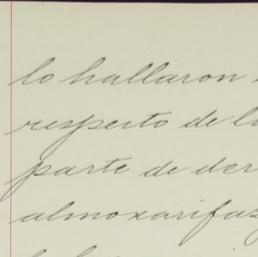 lo hallaron
respecto de l
parte de der
almoxarifaz